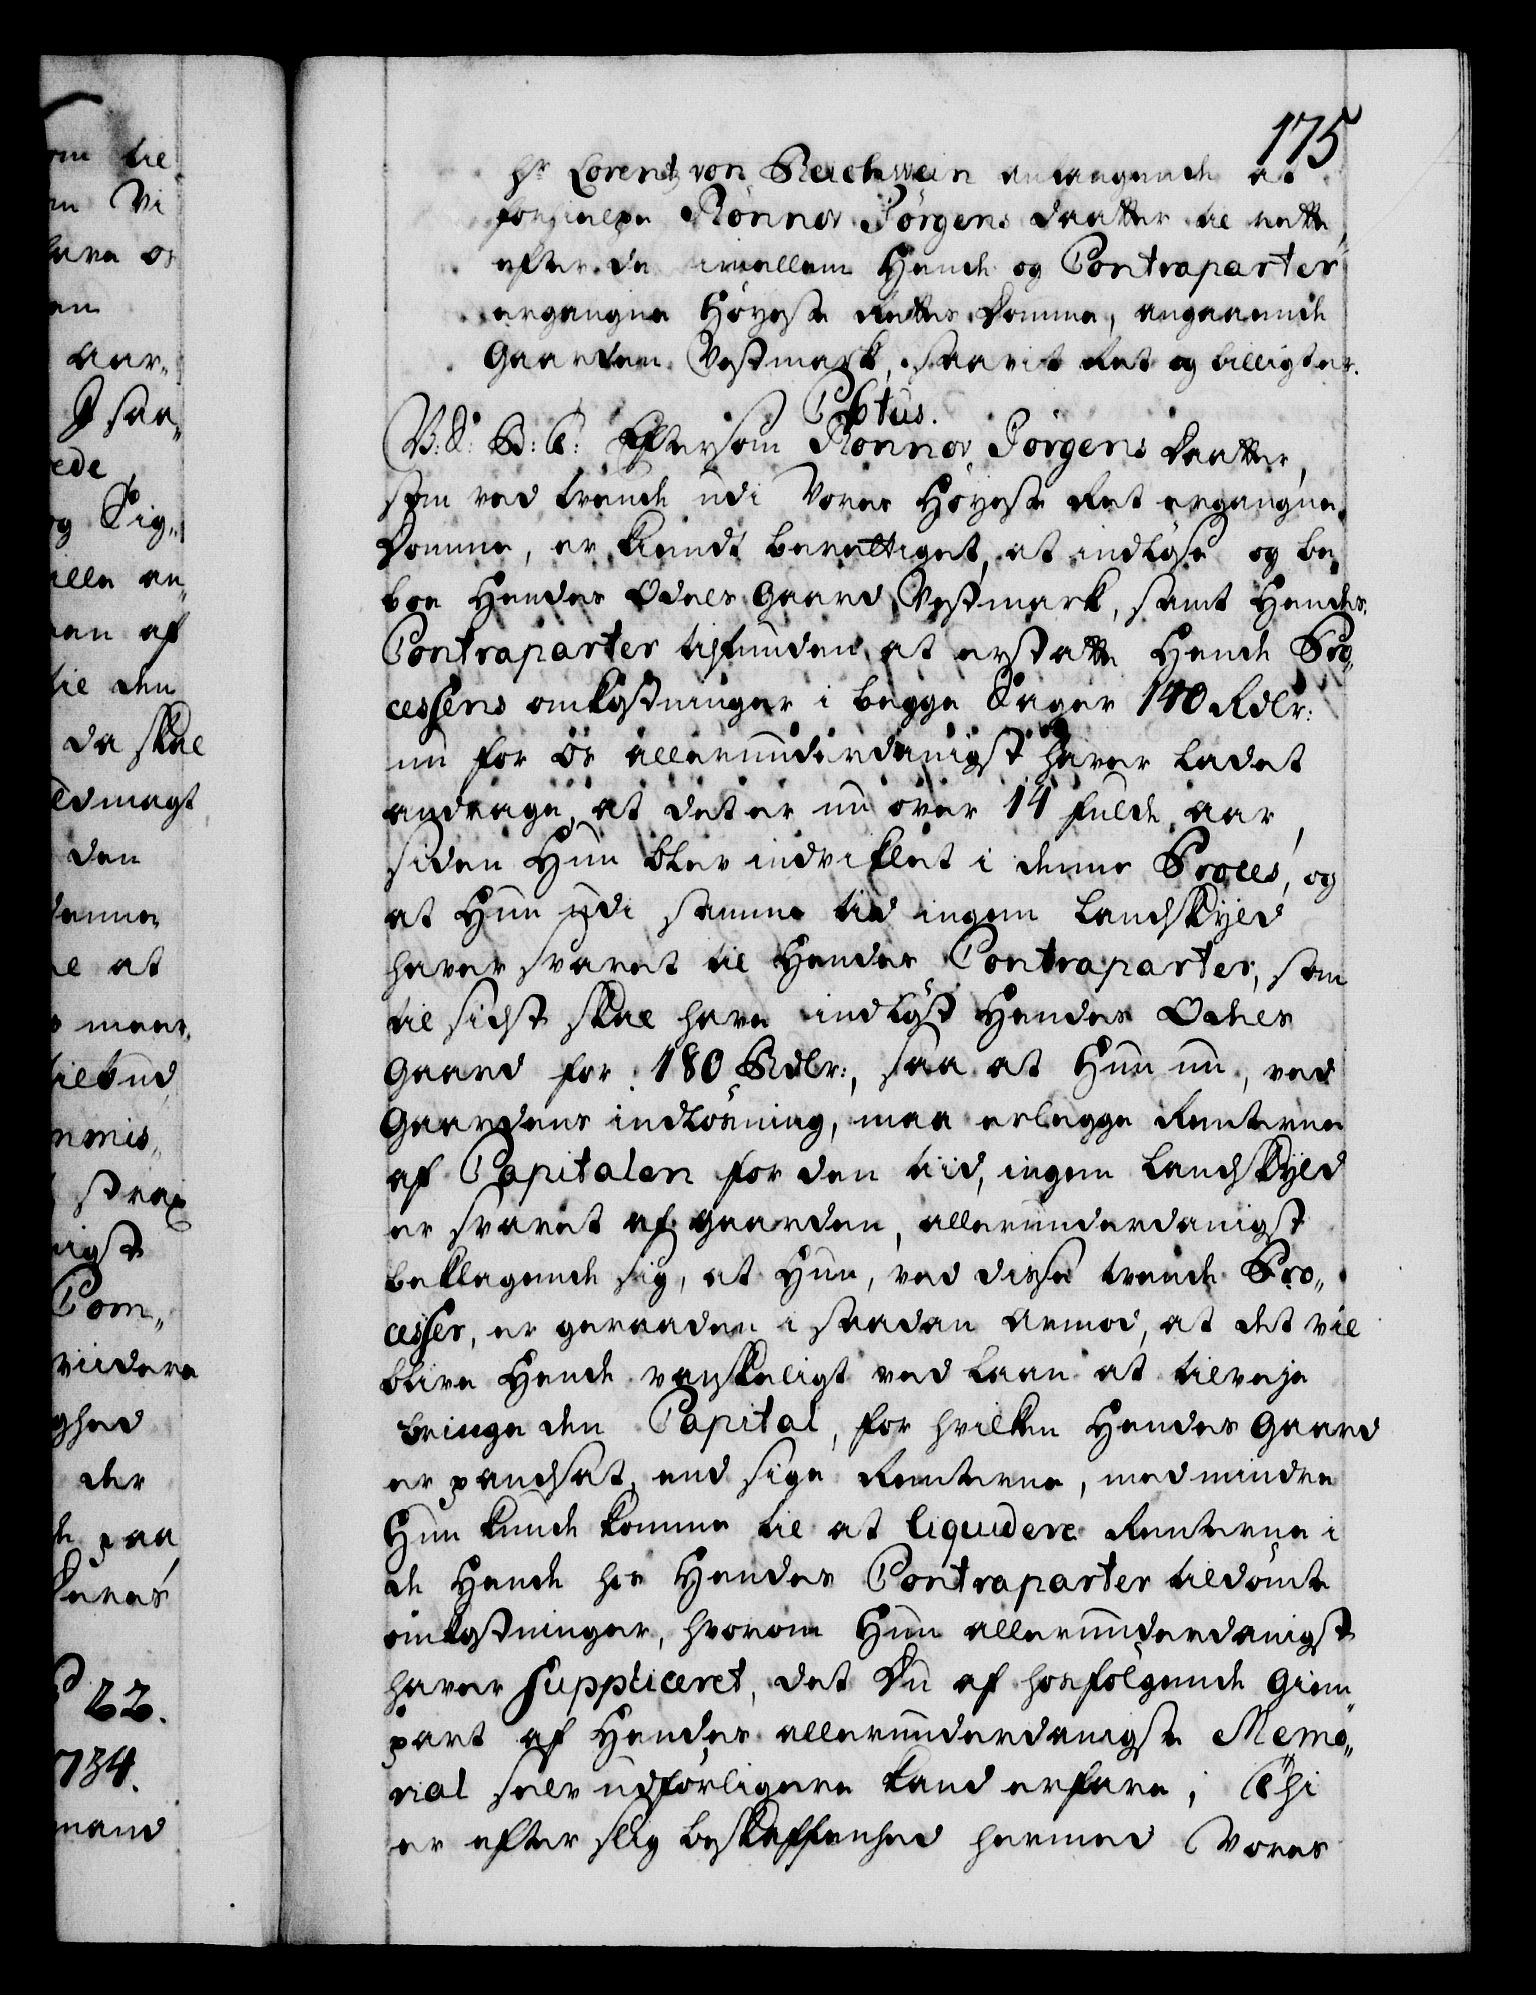 175
Hr Lorentz von Reichwein anlangende at
forhielpe Rönnov Jörgens Daatter til rette,
efter de imellem Hende og Contraparter
ergangne Höyeste Rettes Domme, angaaende
Gaarden Westmark, saavit Ret og billigt er.
Cftus.
V: S: B: G: Eftersom Rönnov Jörgens Daatter,
som ved tvende udi Vores Höyeste Ret ergangne
Domme, er kiendt berettiget, at indlöse og be„
boe Hendes Odels Gaard Westmark, samt Hendes
Contraparter tilfunden, at erstatte Hende Pro„
cessens omkostninger i begge Sager 140 Rdlr:
nu for os allerunderdanigst haver ladet
andrage, at det er nu over 14 fulde aar,
siden Hun blev indviklet i denne Proces, og
at Hun udi samme tid ingen Landskyld
haver svaret til Hendes Contraparter, som
til sidst skal have indlöst Hendes Odels
Gaard for 180 Rdlr:, saa at Hun nu, ved
Gaardens indlösning, maa erlegge Renterne
af Capitalen for den tiid, ingen Landskyld
er svaret af gaarden, allerunderdanigst
beklagende sig, at Hun, ved disse tvende Pro„
cesser, er geraaden i saadan armod, at det vil
blive Hende vanskeligt ved Laan at tilveje
bringe den Capital, for hvilken Hendes Gaard
er pandsat, end sige Renterne, med mindre
Hun kunde komme til at liquidere Renterne i
de Hende hos Hendes Contraparter tildömte
omkostninger, hvorom Hun allerunderdanigst
haver suppliceret, det Du af hosfölgende Gien„
part af Hendes allerunderdanigste Memo„
rial selv udförligere kand erfare; Thi
er efter slig beskaffenhed hermed Vores
om til
Vi
have os
en
aar„
I saa„
ede
og Sig„
ille an„
en af
til den
da skal
ldmagt
den
denne
at
meer
tilbud
mmis„
strax
nigst
Com„
viidere
ghed
der
paa
deres
22.
1734.
mand